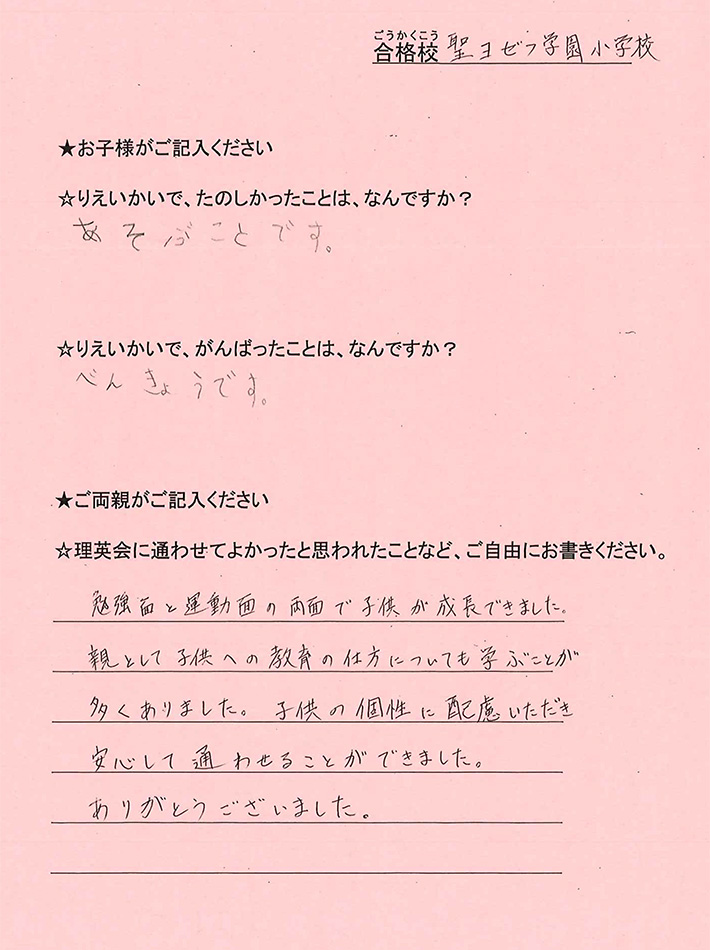 ごうかくこう
合格校 聖ヨゼフ学園小学校
★お子様がご記入ください
☆りえいかいで、たのしかったことは、なんですか？
あそぶことです。
☆りえいかいで、がんばったことは、なんですか？
べんきょうです。
★ご両親がご記入ください
☆理英会に通わせてよかったと思われたことなど、ご自由にお書きください。
勉強面と運動面の両面で子供が成長できました。
親として子供への教育の仕方についても学ぶことが
多くありました。子供の個性に配慮いただき
安心して通わせることができました。
ありがとうございました。